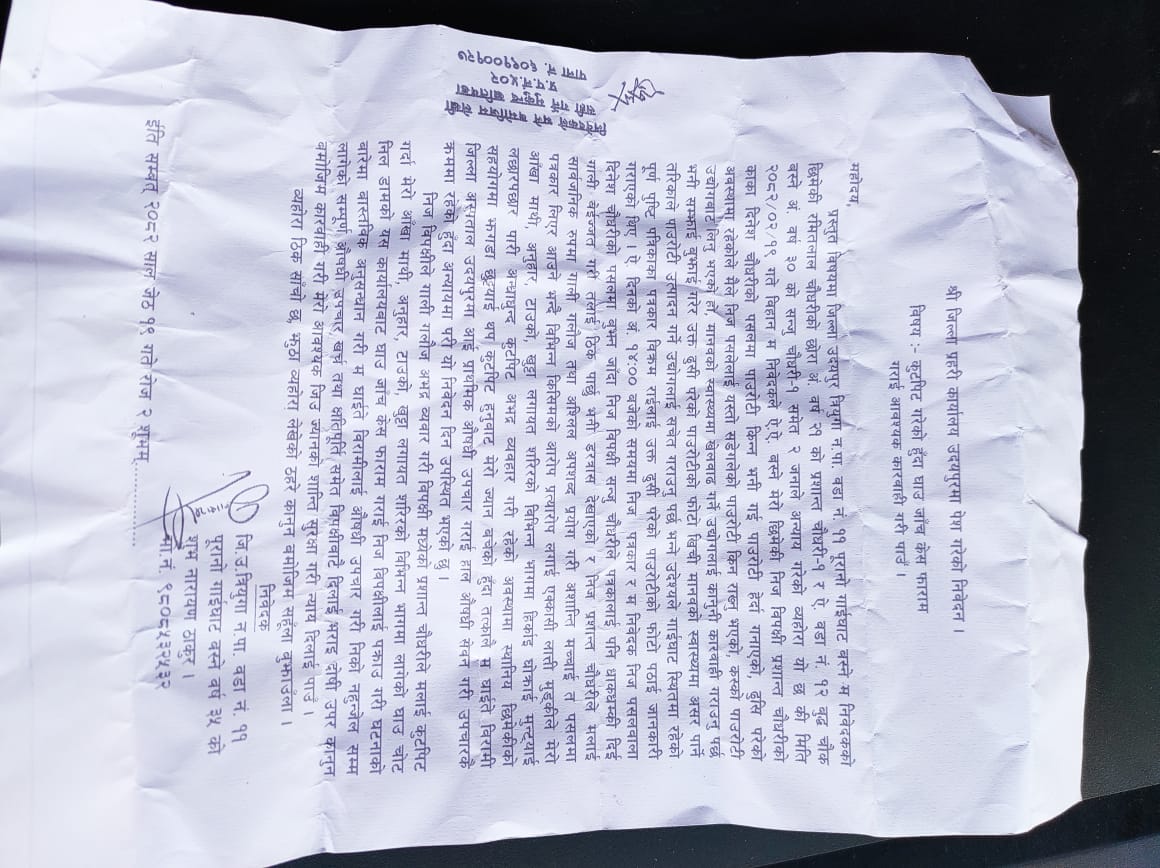 श्री जिल्ला प्रहरी कार्यालय उदयपुरमा पेश गरेको निवेदन ।
विषय :- कुटपिट गरेको हुँदा घाउ जाँच केस फाराम
गराई आवश्यक कारवाही गरी पाउँ ।
महोदय,
प्रस्तुत विषयमा जिल्ला उदयपुर त्रियुगा न.पा. वडा नं ११ पुरानो गाईघाट बस्ने म निवेदकको
छिमेकी रमितलाल चौधरीको छोरा अं. वर्ष २१ को प्रशान्त चौधरी-१ र ऐ. वडा नं. १२ बुद्ध चौक
बस्ने अं. वर्ष ३० को सन्जु चौधरी-१ समेत २ जनाले अन्याय गरेको व्यहोरा यो छ की मिति
२०८२/०२/१९ गते विहान म निवेदकले ऐ.ऐ. बस्ने मेरो छिमेकी निज विपक्षी प्रशान्त चौधरीको
काका दिनेश चौधरीको पसलमा पाउरोटी किन्न भनी गई पाउरोटी हेर्दा गनाएको, ढुसि परेको
अवस्थामा रहेकोले मैले निज पसलेलाई यस्तो सडेगलेको पाउरोटी किन राख्नु भएको, कस्को पाउरोटी
उद्योगबाट लिनु भएको हो, मानवको स्वास्थ्यमा खेलवाड गर्ने उद्योगलाई कानुनी कारवाही गराउनु पर्छ
भनी सम्झाई बुझाई गरेर उक्त ढुसी परेको पाउरोटीको फोटो खिची मानवको स्वास्थ्यमा असर पार्ने
तरिकाले पाउरोटी उत्पादन गर्ने उद्योगलाई सचेत गराउनु पर्छ भन्ने उद्देश्यले गाईघाट स्थितमा रहेको
पूर्ण पुष्टि पत्रिकाका पत्रकार विक्रम राईलाई उक्त ढुसी परेको पाउरोटीको फोटो पठाई जानकारी
गराएको थिए । ऐ. दिनको अं. १४:०० बजेको समयमा निज पत्रकार र म निवेदक निज पसलवाला
दिनेश चौधरीको पसलमा बुझ्न जाँदा निज विपक्षी सन्जु चौधरीले पत्रकालाई पनि धाकधम्की दिई
गाली बेईज्जत गरी तलाई ठिक पार्छु भनी डरत्रास देखाएको र निज प्रशान्त चौधरीले मलाई
सार्वजनिक रुपमा गाली गलौज तथा अश्लिल अपशब्द प्रयोग गरी अशान्ति मच्चाई त पसलमा
पत्रकार लिएर आउने भन्दै विभिन्न किसिमको आरोप प्रत्यारोप लगाई एक्कासी लात्ती मुड्कीले मेरो
आँखा माथी, अनुहार, टाउको, खुट्टा लगायत शरिरको विभिन्न भागमा हिर्काई घोक्राई मुन्ट्याई
लछारपछार पारी अन्धाधुन्द कुटपिट अभद्र व्यवहार गरी रहेको अवस्थामा स्थानिय छिमेकीको
सहयोगमा झगडा छुट्याई थप कुटपिट हुनुबाट मेरो ज्यान बचेको हुँदा तत्कालै म घाईते विरामी
जिल्ला अस्पताल उदयपुरमा आई प्राथमिक औषधी उपचार गराई हाल औषधी सेवन गरी उपचारकै
क्रममा रहेको हुँदा अन्यायमा परी यो निवेदन दिन उपस्थित भएको छु ।
निज विपक्षीले गाली गलौज अभद्र व्यवकार गरी विपक्षी मध्येको प्रशान्त चौधरीले मलाई कुटपिट
गर्दा मेरो आँखा माथी, अनुहार, टाउको, खुट्टा लगायत शरिरको विभिन्न भागमा लागेको घाउ चोट
निल डामको यस कार्यालयबाट घाउ जाँच केस फाराम गराई निज विपक्षीलाई पक्राउ गरी घटनाको
बारेमा वास्तविक अनुसन्धान गरी म घाईते विरामीलाई औषधी उपचार गरी निको नहुन्जेल सम्म
लागेको सम्पूर्ण औषधी उपचार खर्च तथा क्षतिपूर्ति समेत विपक्षीबाटै दिलाई/भराई दोषी उपर कानुन
बमोजिम कारवाही गरी मेरो आवश्यक जिउ ज्यानको शान्ति सुरक्षा गरी न्याय दिलाई पाउँ ।
व्यहोरा ठिक साँचो छ, झुठा व्यहोरा लेखेको ठहरे कानुन बमोजिम सहुँला बुझाउँला ।
निवेदक
जि.उ.त्रियुगा न.पा. वडा नं. ११
पुरानो गाईघाट बस्ने वर्ष ३५ को
शुभ नारायण ठाकुर ।
मो.नं. ९८०८५३५३२
ईति सम्वत् २०८२ साल जेठ १९ गते रोज २ शुभम्..............
निवेदकको भने बमोजिम लेखी
सही गर्ने मुकुन्द
प्र.प.नं.५०२
पाना नं. ६०९१००१२७